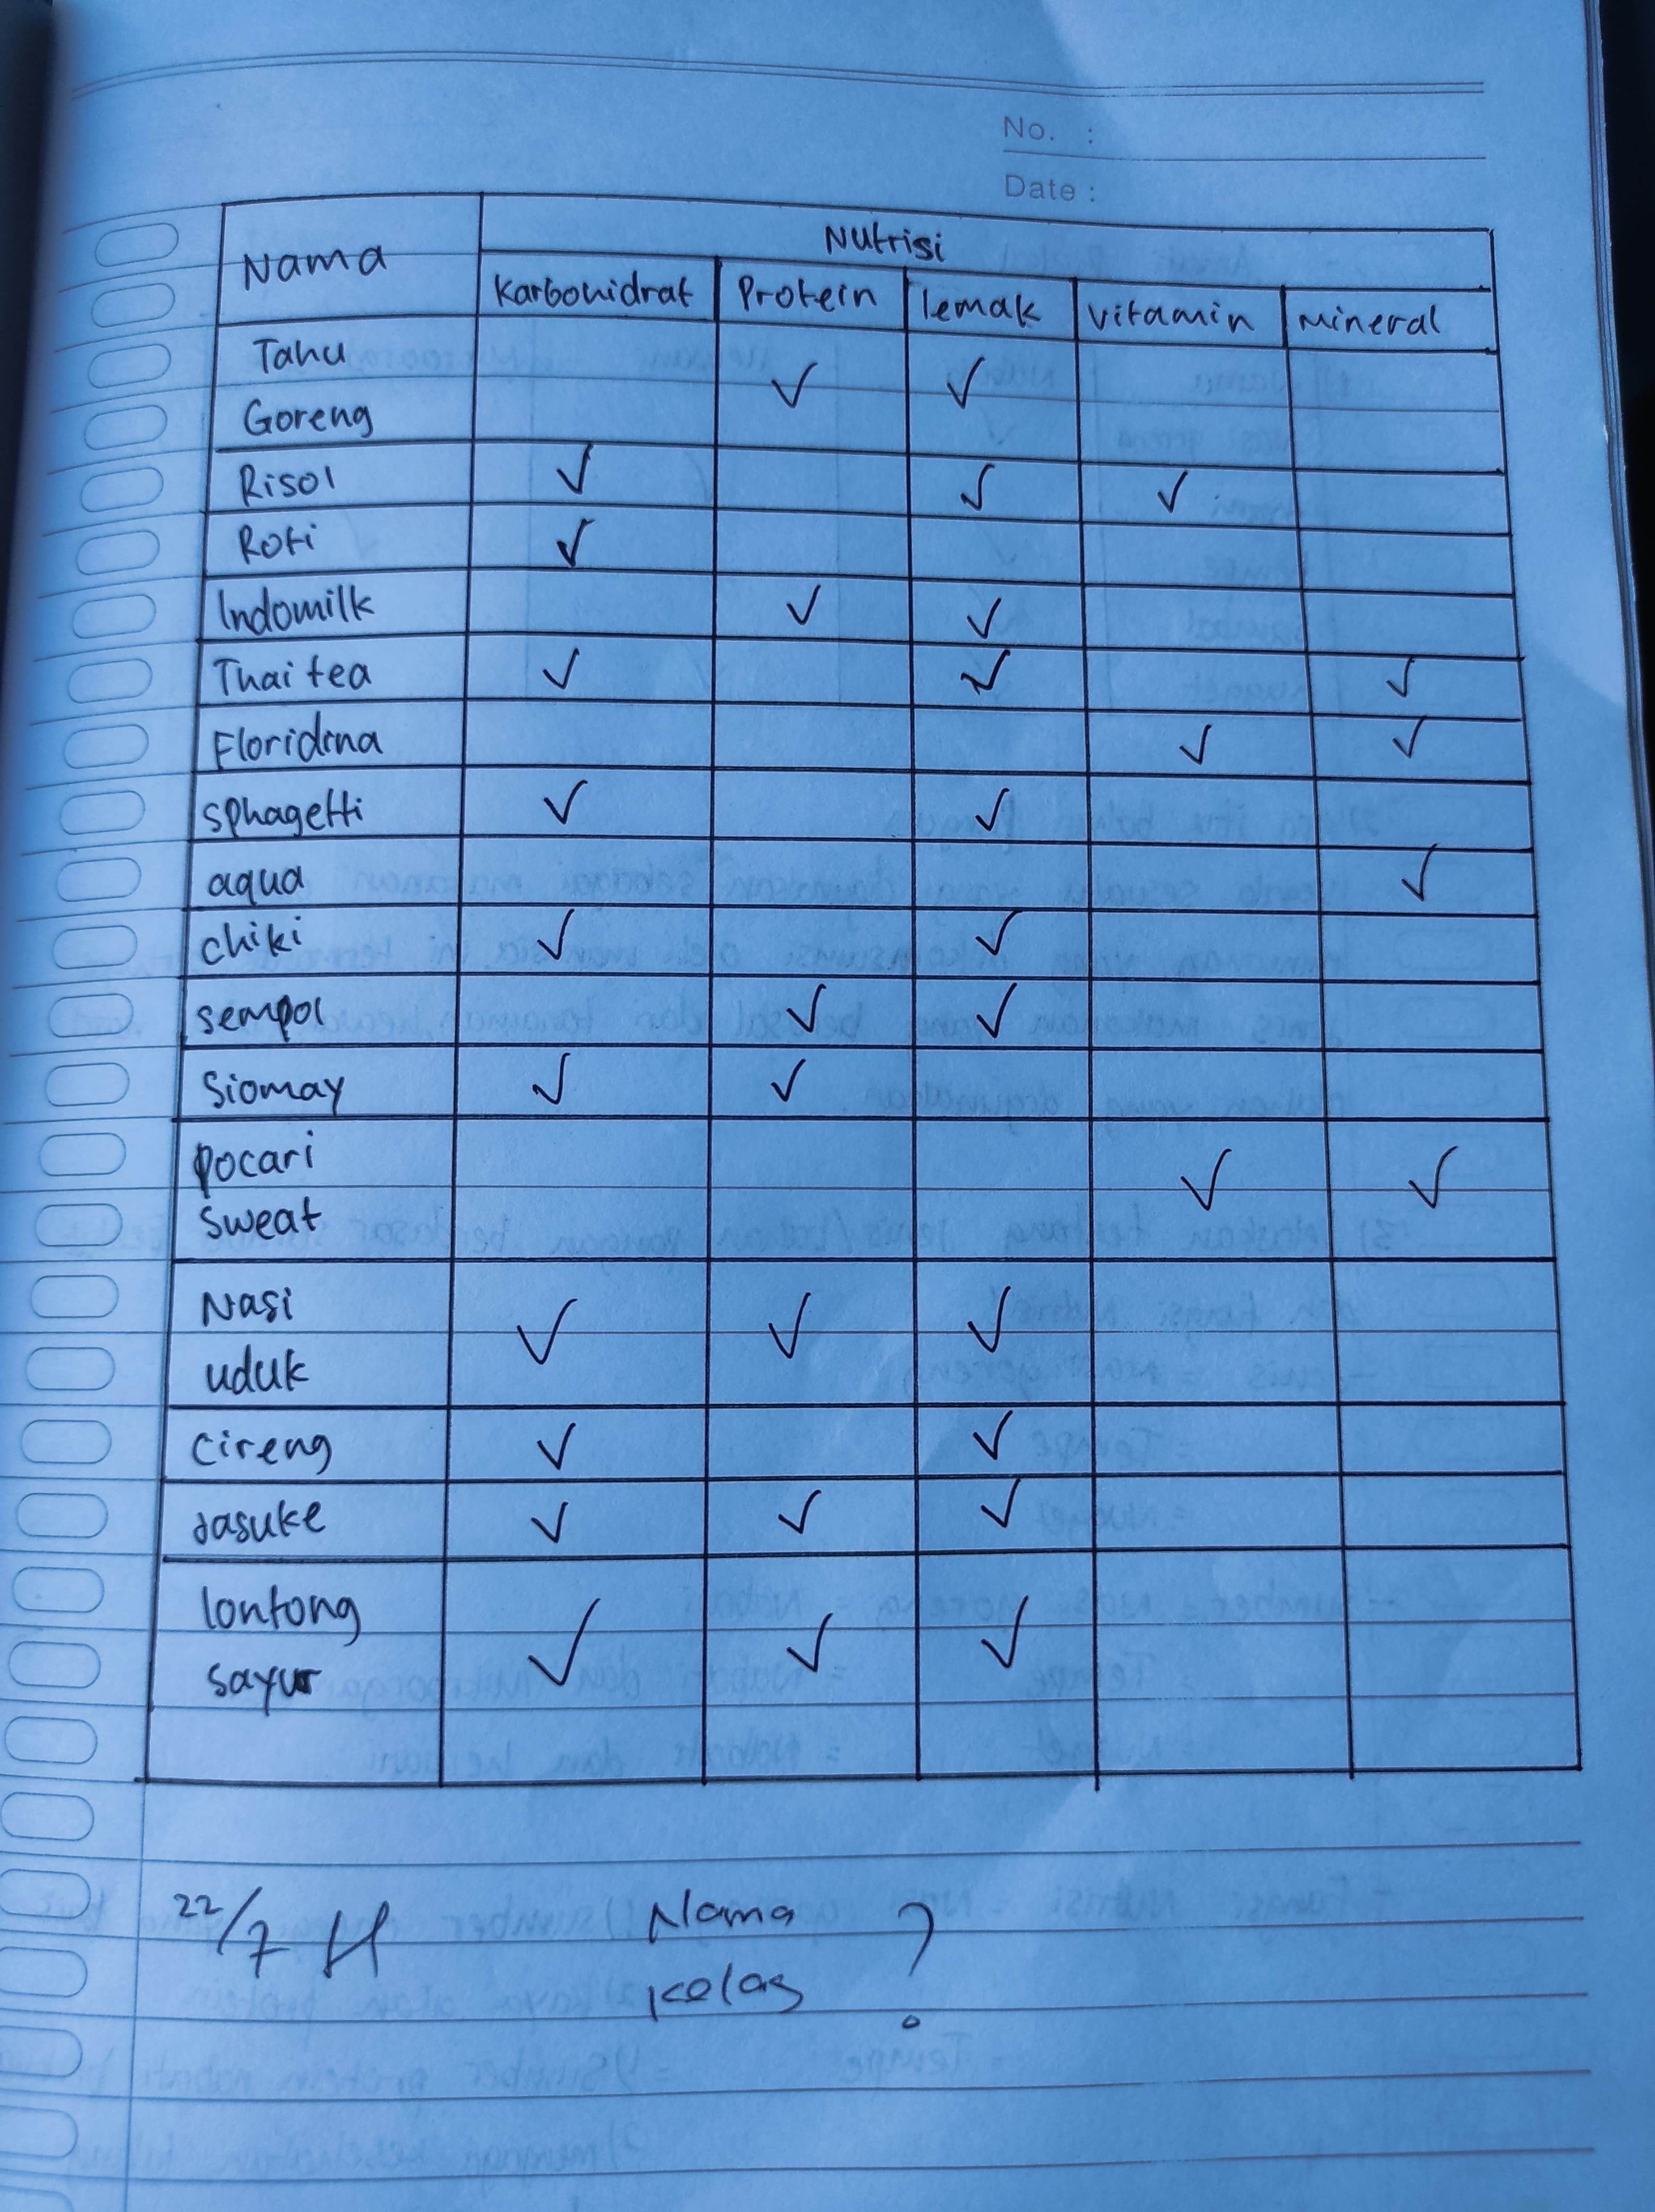 No. :
Date :
Nama
Nutrisi
Karbohidrat Protein lemak vitamin Mineral
Tahu
Goreng ✓ ✓
Risol ✓ ✓ ✓
Roti ✓
Indomilk ✓ ✓
Thai tea ✓ ✓ ✓
Floridina ✓ ✓
sphagetti ✓ ✓
aqua ✓
chiki ✓ ✓
sempol ✓ ✓
Siomay ✓ ✓
pocari
sweat ✓ ✓
Nasi
uduk ✓ ✓ ✓
cireng ✓ ✓
Jasuke ✓ ✓ ✓
lontong
sayur ✓ ✓ ✓
22/7 Nama
Kelas ?